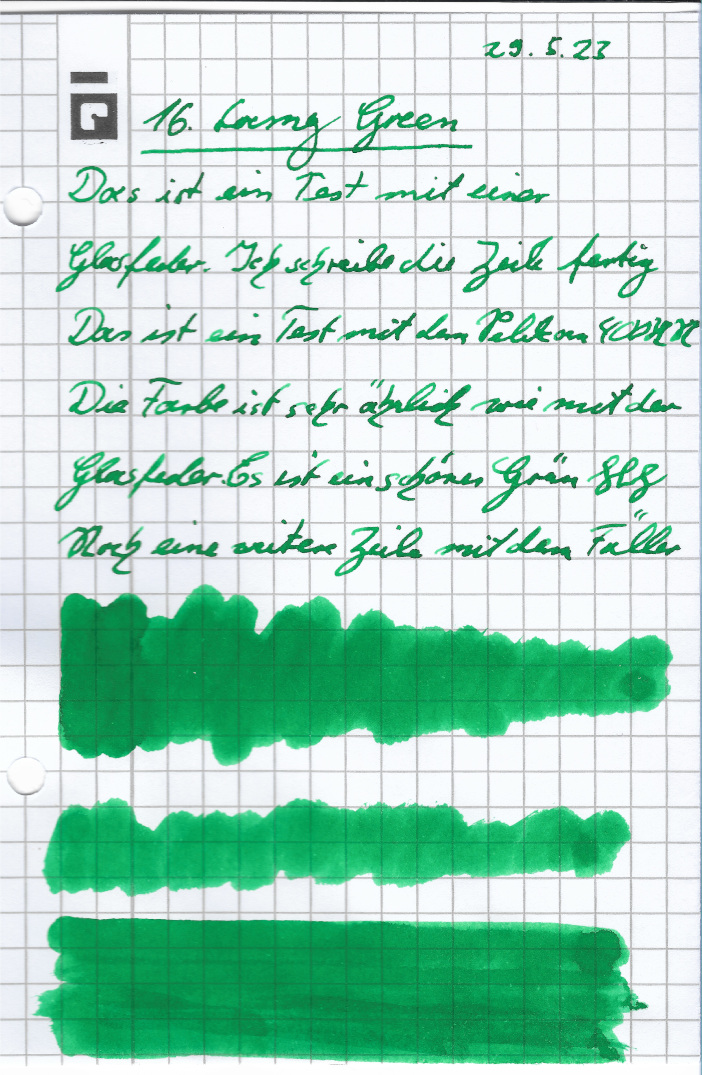 29.5.23
16. Loemg Green
Das ist ein Test mit einer
Glasfeder. Ich schreibe die Zeile fertig
Das ist ein Test mit dem Pelikan
Die Farbe ist sehr ähnlich wie mit der
Glasfeder. Es ist ein schönes Grün
Noch eine weitere Zeile mit dem Füller